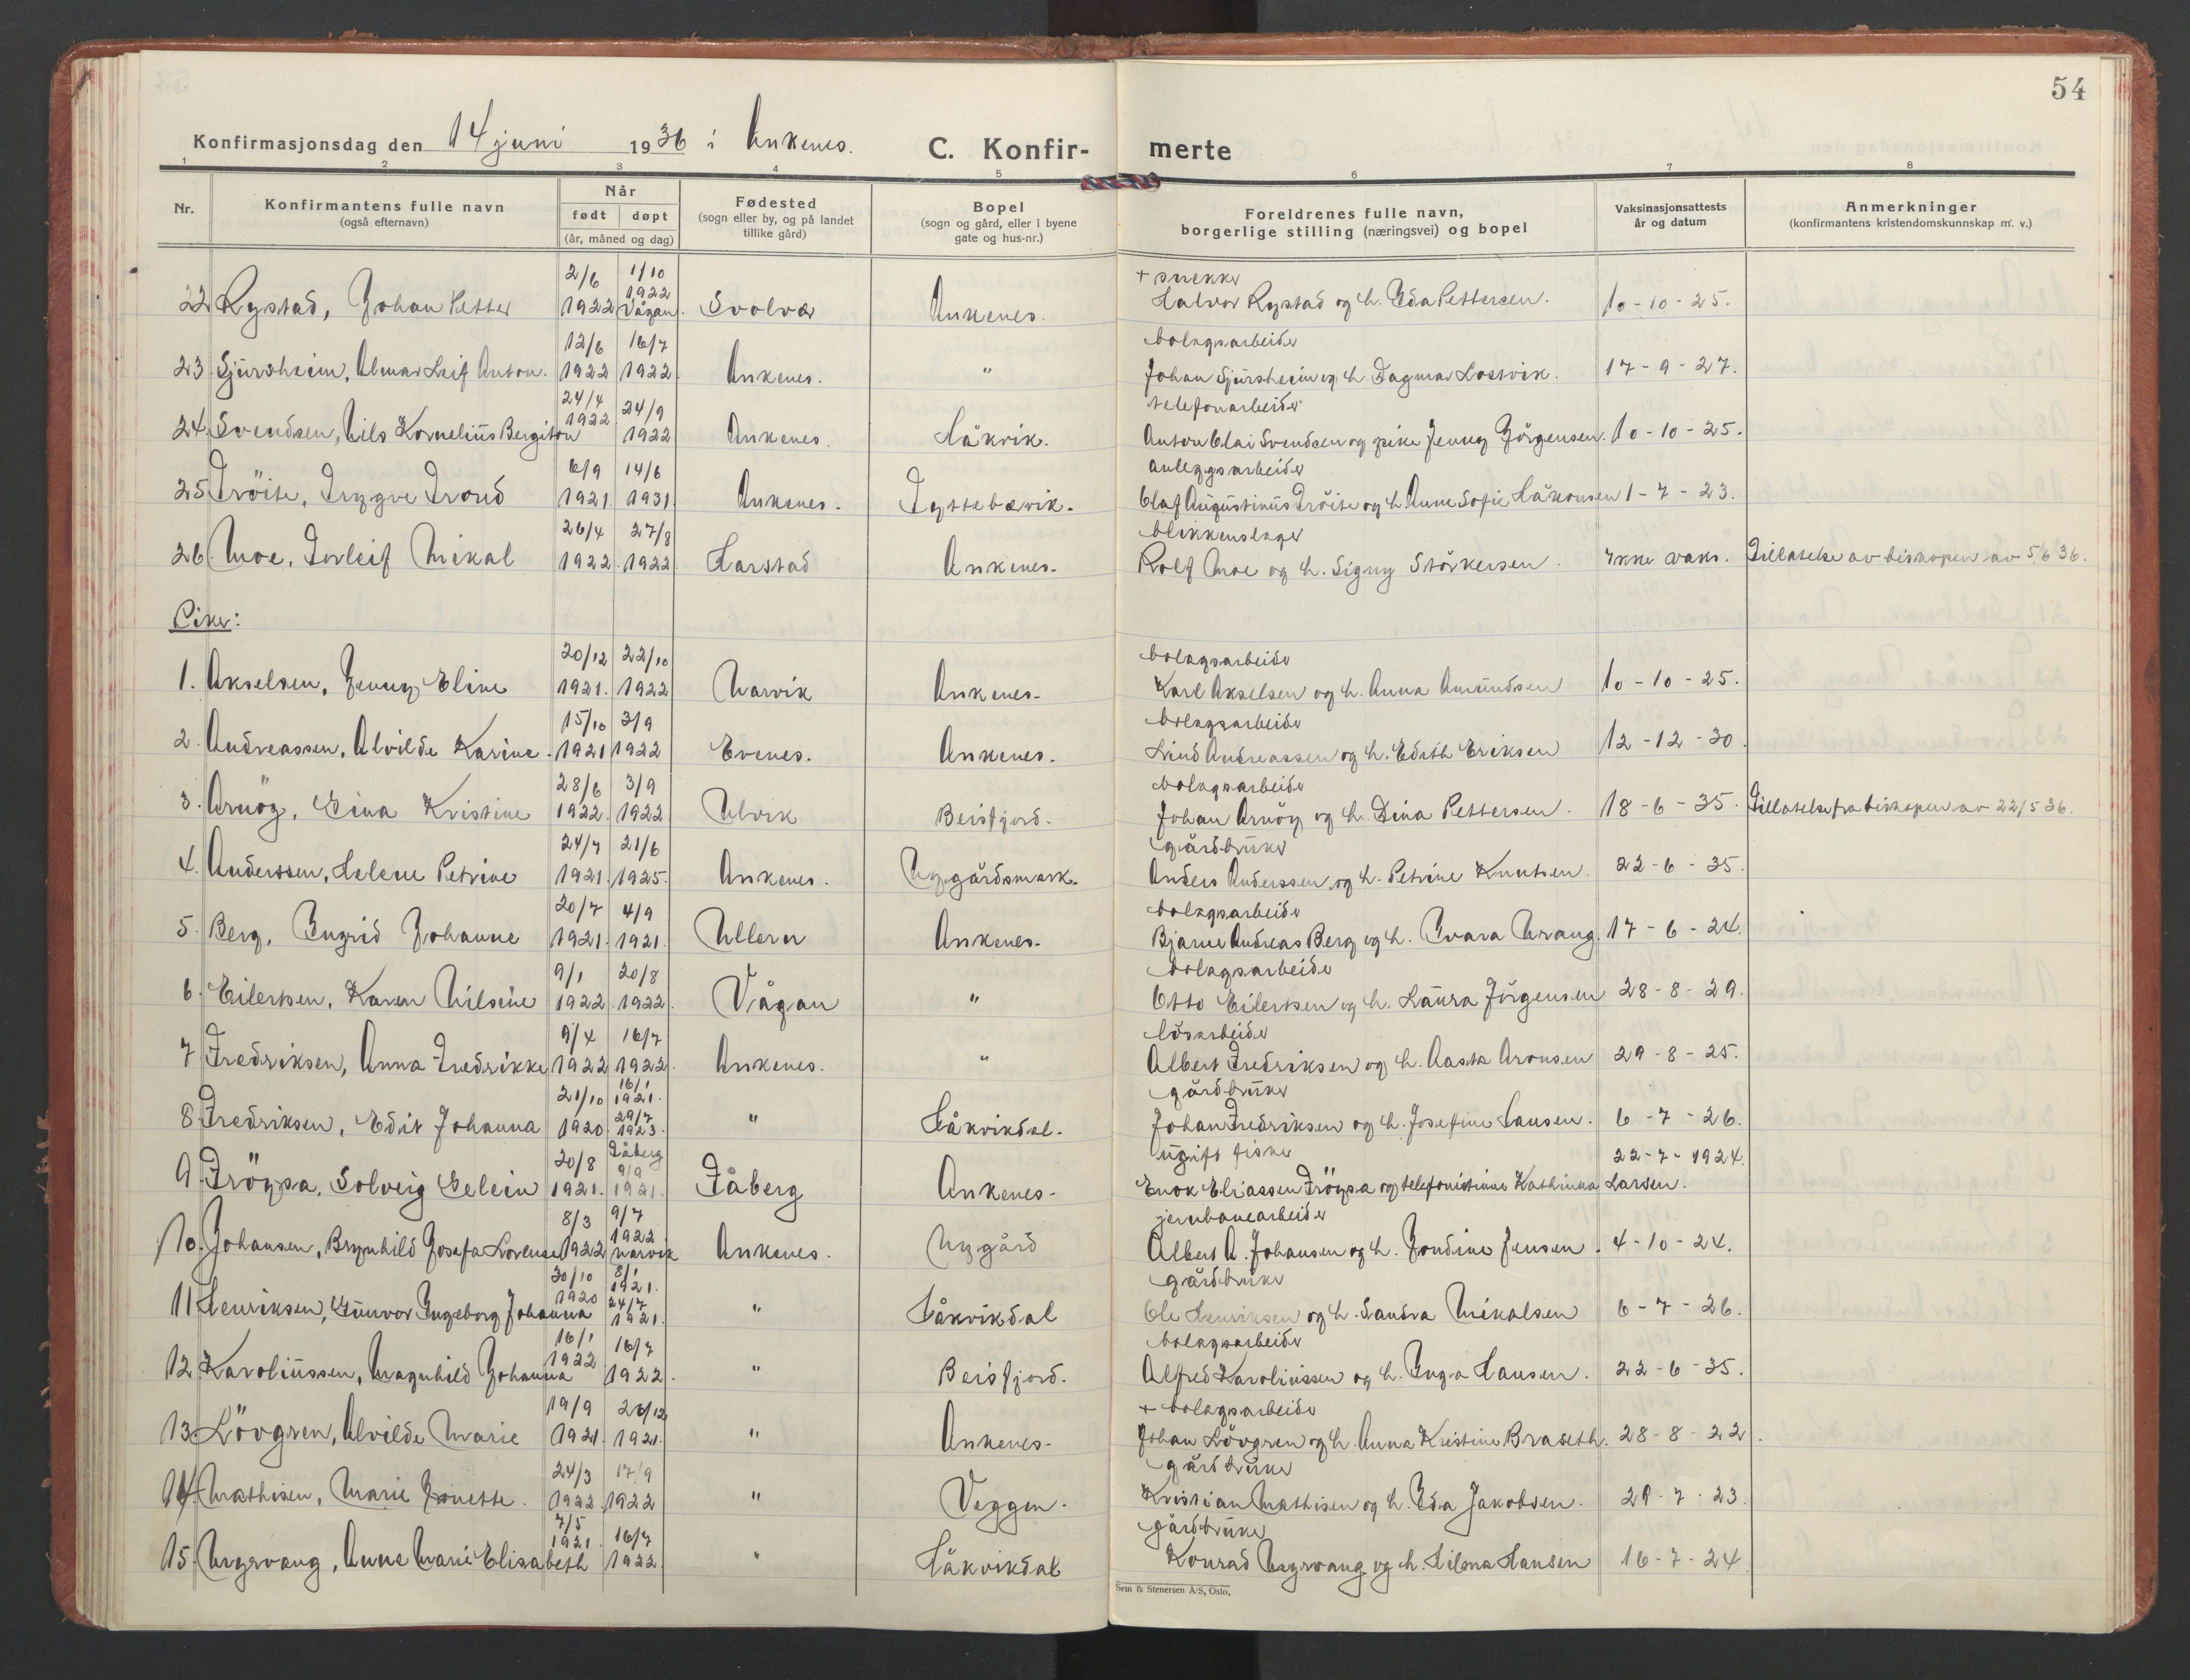 54
Konfirmasjonsdag den 14 juni 1936 i Ankenes. C. Konfir- merte
1 2 3 4 5 6 7 8
Nr. Konfirmantens fulle navn (også efternavn) Når født døpt (år, måned og dag) Fødested (sogn eller by, og på landet tillike gård) Bopel (sogn og gård, eller i byene gate og hus-nr.) Foreldrenes fulle navn, borgerlige stilling (næringsvei) og bopel Vaksinasjonsattests år og datum Anmerkninger (konfirmantens kristendomskunnskap m. v.)
2/6 1/10 + snekker
22 Rystad, Johan Petter 1922 1922 Vågan. Svolvær Ankenes. Halvor Rystad og h. Ida Pettersen. 10-10-25.
12/6 16/7 bolagsarbeider
23. Sjursheim, Almar Leif Anton. 1922 1922 Ankenes. " Johan Sjursheim og h. Dagmar Losvik. 17-9-27.
24/4 24/9 telefonarbeider
24. Svendsen, Nils Kornelius Bergiton 1922 1922 Ankenes. Håkvik. Anton Olai Svendsen og pike Jenny Jörgensen. 10-10-25.
6/9 14/6 anleggsarbeider
25 Tröite, Trygve Trond 1921 1931 Ankenes. Tyttebærvik. Olaf Augustinus Tröite og h. Anne Sofie Håkonsen 1-7-23.
26/4 27/8 blikkenslager
26. Moe, Torleif Mikal 1922. 1922. Harstad Ankenes. Rolf Moe og h. Signy Störkersen. Ikke vaks. Tillatelse av biskopen av 5/6 36.
Piker:
20/12 22/10 bolagsarbeider
1. Akselsen, Jenny Eline 1921. 1922 Narvik Ankenes. Karl Akselsen og h. Anna Amundsen 10-10-25.
15/10 3/9 bolagsarbeider
2. Andreassen, Alvilde Karine. 1921 1922 Evenes. Ankenes. Lind Andreassen og h. Edith Eriksen 12-12-30.
28/6 3/9 bolagsarbeider
3. Arnöy, Gina Kristine 1922. 1922 Ulvik Beisfjord. Johan Arnöy og h. Dina Pettersen. 18-6-35. Tillatelse fra biskopen av 22/5 36.
24/7 21/6 gårdbruker
4. Anderssen, Helene Petrine 1921. 1925. Ankenes. Nygårdsmark. Anders Anderssen og h. Petrine Knutsen. 22-6-35.
20/7 4/9 bolagsarbeider
5. Berg, Ingrid Johanne 1921. 1921. Ullern Ankenes. Bjarne Andreas Berg og h. Ivara Wrang. 17-6-24.
9/1 20/8 bolagsarbeider
6. Eilertsen, Karen Nilsine 1922. 1922. Vågan " Otto Eilertsen og h. Laura Jörgensen 28-8-29.
9/4 16/7 lösarbeider
7 Fredriksen, Anna Fredrikke 1922 1922. Ankenes. " Albert Fredriksen og h. Aasta Aronsen 29-8-25.
21/10 16/1 1921. gårdbruker
8 Fredriksen, Edit Johanna 1920. 29/7 1923. " Håkvikdal. Johan Fredriksen og h. Josefine Hansen. 6-7-26.
20/8 Fåberg 9/9 ugift fisker 22-7-1924.
9. Fröysa, Solveig Gelein 1921. 1921. Fåberg Ankenes. Enok Eliassen Fröysa og telefonistinne Kathinka Larsen.
8/3 9/7 jernbanearbeider
10. Johansen, Brynhild Josefa Lorense 1922 1922 Narvik Ankenes. Nygård Albert A. Johansen og h. Jondine Jensen. 4-10-24.
30/10 8/1 1921. gårdbruker
11 Henriksen, Gunvor Ingeborg Johanna 1920 24/7 1921. " Håkvikdal Ole Henriksen og h. Sandra Mikalsen 6-7-26.
16/1 16/7 bolagsarbeider
12 Karoliussen, Magnhild Johanna 1922 1922. " Beisfjord. Alfred Karoliussen og h. Inga Hansen. 22-6-35.
19/9 26/12 + bolagsarbeider
13. Lövgren, Alvilde Marie 1921. 1921. " Ankenes. Johan Lövgren og h. Anna Kristine Braseth. 28-8-22.
24/3 17/9 gårdbruker
14. Mathisen, Marie Jonette. 1922. 1922 " Veggen. Kristian Mathisen og h. Ida Jakobsen. 29-7-23.
7/5 16/7 gårdbruker
15. Nygvang, Anne Marie Elisabeth 1921. 1922. " Håkvikdal Konrad Nygvang og h. Hilma Hansen 16-7-24
Sem & Stenersen A/S, Oslo.